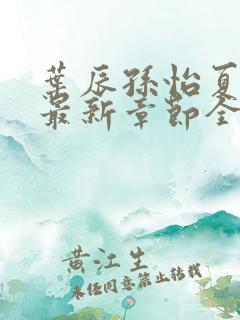 葉辰孫怡夏
最新章節全
黄江生
未经同意禁止转载